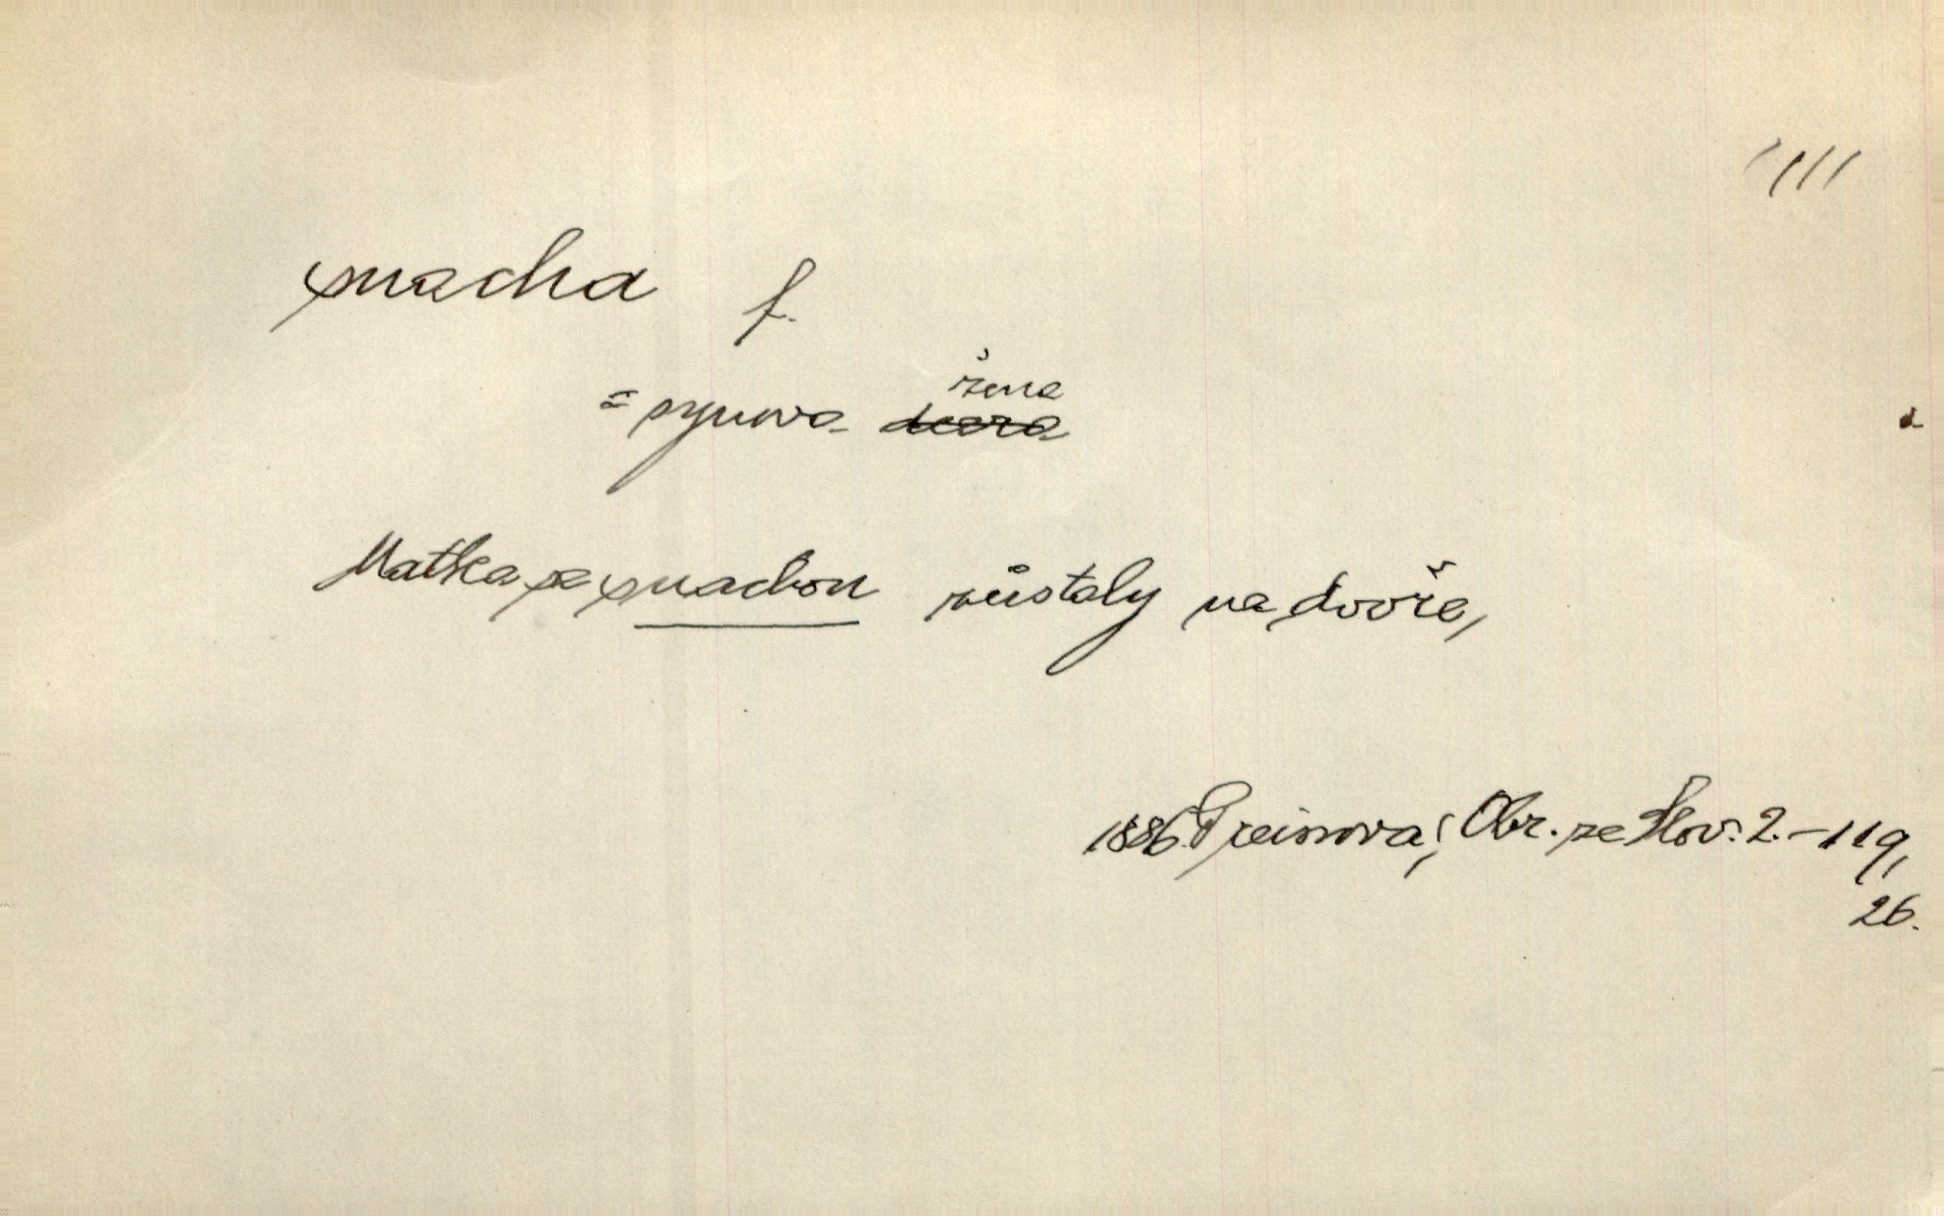 snacha f.
= synova žena
Matka se snachou zůstaly na dvoře,
1886. Preissova, Obr. ze Slov. 2. – 119,
26.